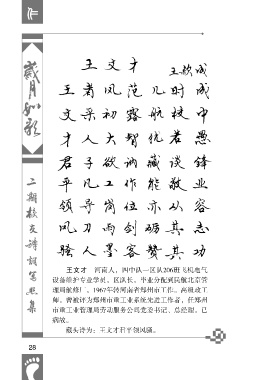 歲月如歌
二期校友诗词写照集
王文才
王者风范几时成
文采初露航校中
才人大智优若愚
君子欲讷藏谈锋
平凡工作能敬业
领导岗位亦从容
风刀雨剑砺其志
骚人墨客赞其功
王文才 河南人，四中队一区队206班飞机电气
设备维护专业学员，区队长。毕业分配到民航北京管
理局维修厂，1967年转河南省郑州市工作。高级政工
师，曾被评为郑州市重工业系统先进工作者，任郑州
市重工业管理局劳动服务公司党委书记、总经理。已
病故。
藏头诗为：王文才君平领风骚。
28